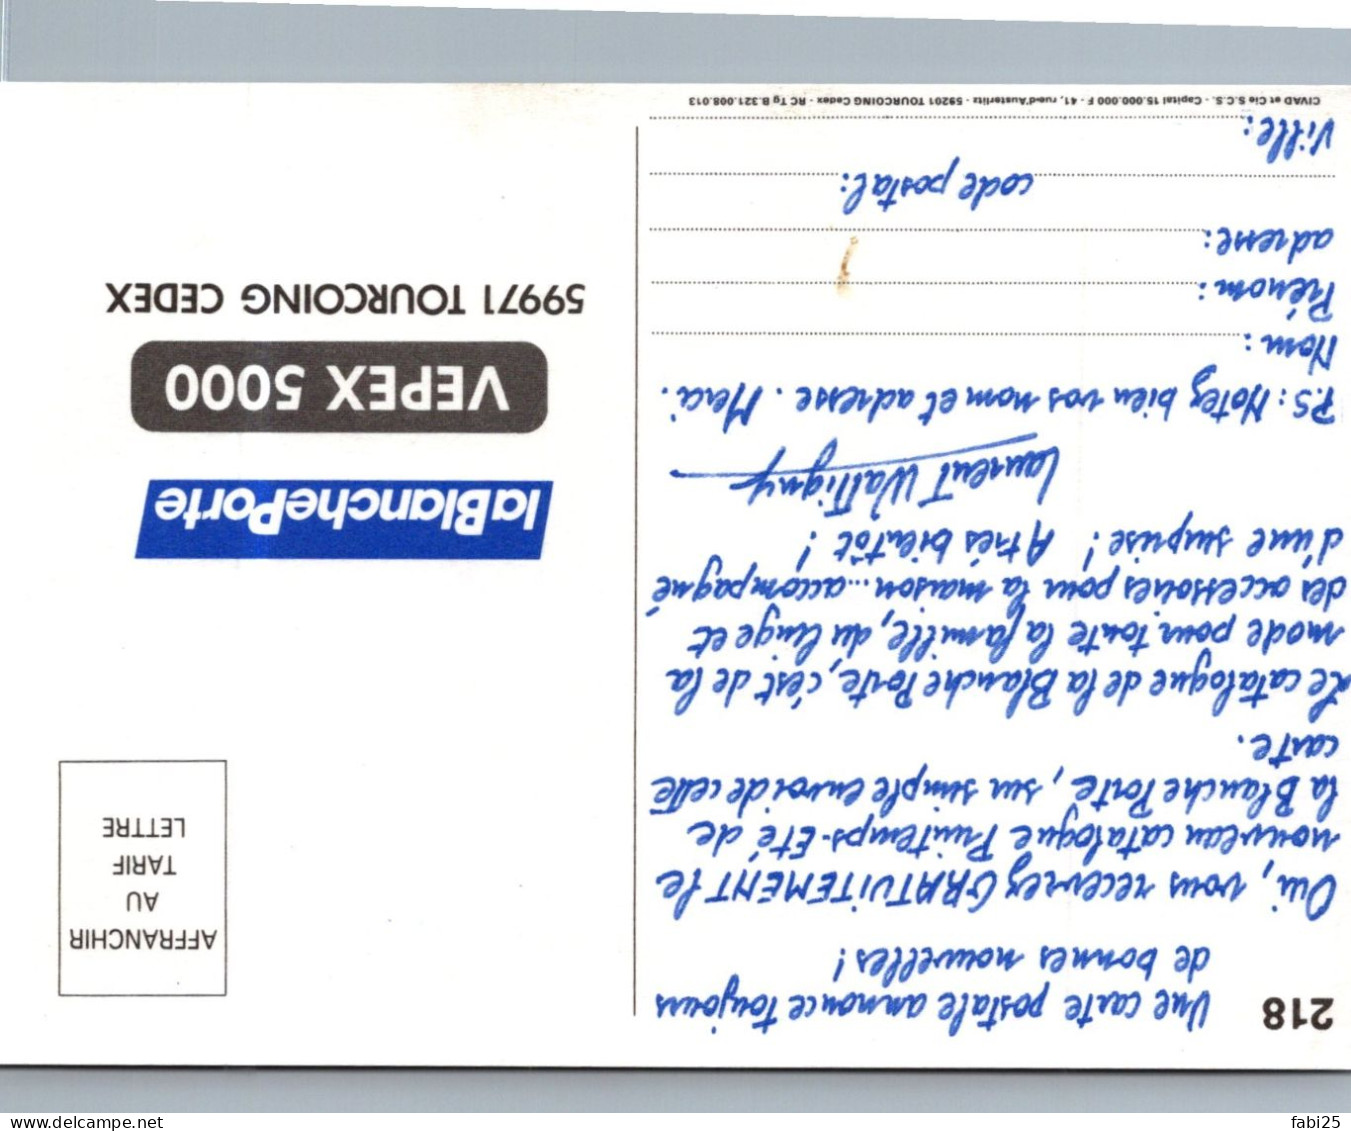 218
Une carte postale annonce toujours
de bonnes nouvelles!
Oui, vous recevrez GRATUITEMENT le
nouveau catalogue Printemps-Eté de
la Blanche Porte, sur simple envoi de cette
carte.
Le catalogue de la Blanche Porte, c'est de la
mode pour toute la famille, du linge et
des accessoires pour la maison...accompagné
d'une surprise! A très bientôt!
Laurent Wattigny
P.S: Notez bien vos nom et adresse. Merci.
Nom:
Prénom:
adresse:
code postal:
Ville:
CIVAD et Cie S.C.S. - Capital 15.000.000 F - 41, rue d'Austerlitz - 59201 TOURCOING Cedex - RC Tg B.321.008.013
AFFRANCHIR
AU
TARIF
LETTRE
laBlanchePorte
VEPEX 5000
59971 TOURCOING CEDEX
www.delcampe.net
fabi25